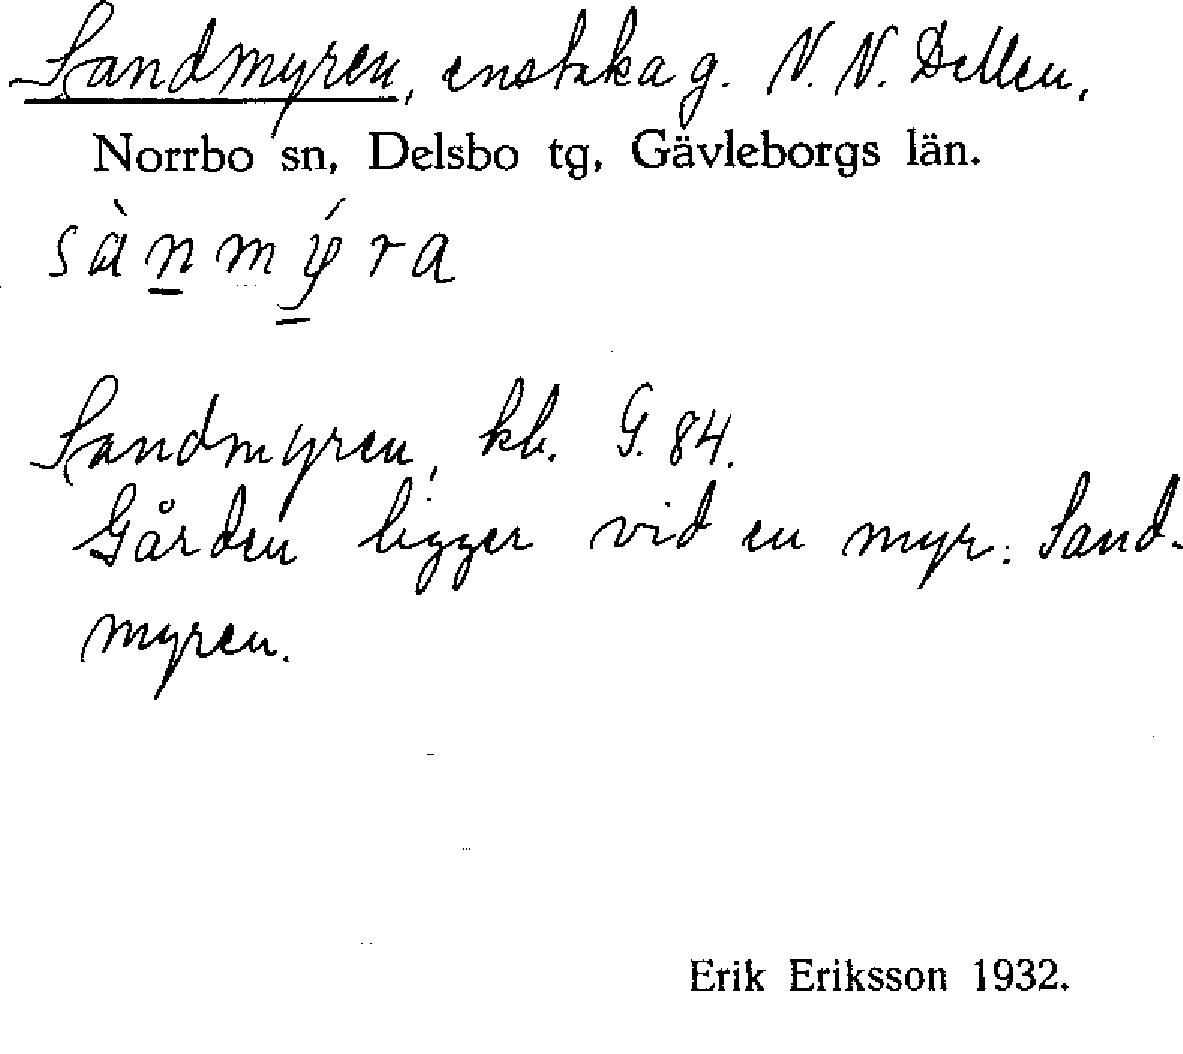 Sandmyren, enstaka g. N. N. Dellen.
Norrbo sn, Delsbo tg, Gävleborgs län.
sànmýra
Sandmyren, kb. G. 84.
Gården ligger vid en myr: Sand-
myren.
Erik Eriksson 1932.